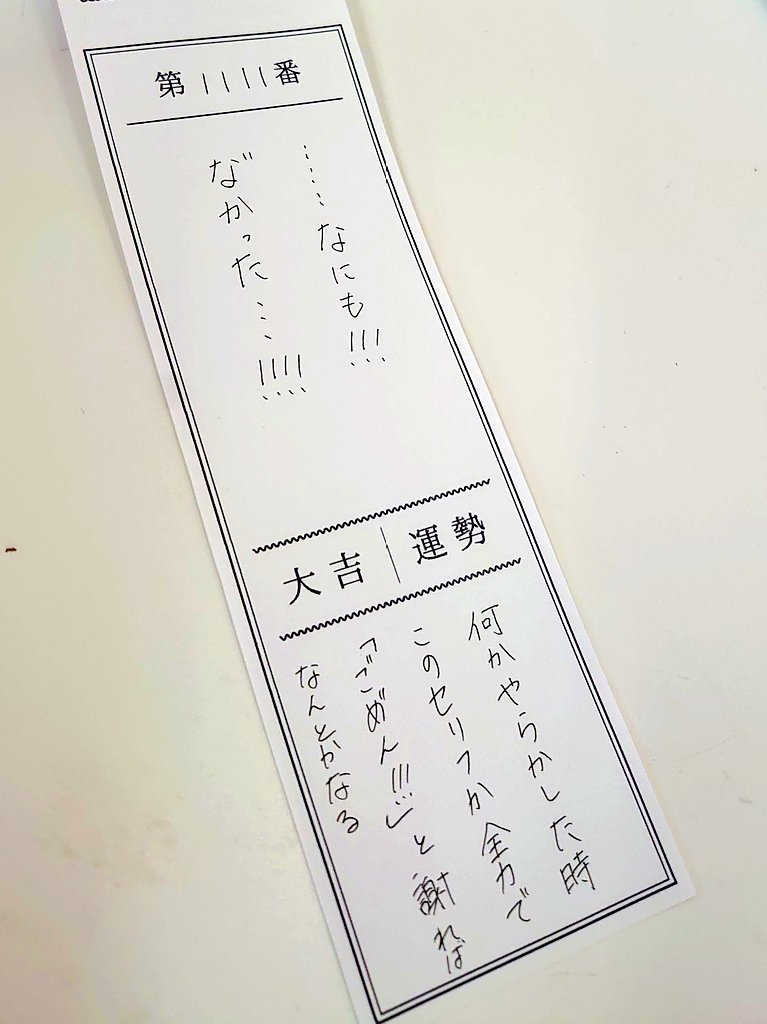 第1111番
……なにも!!!
な゛かった…!!!!
大吉 運勢
何かやらかした時
このセリフか全力で
「ごめ゛ん!!!」と謝れば
なんとかなる